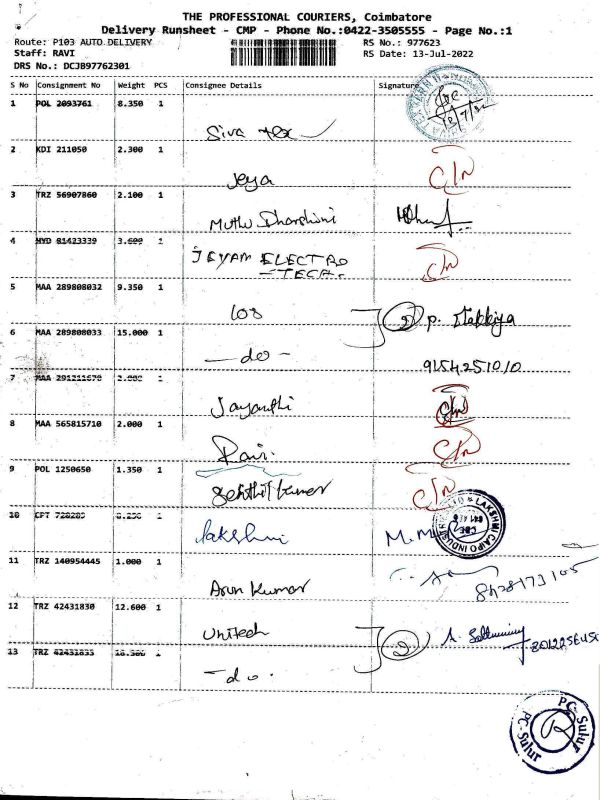 THE PROFESSIONAL COURIERS, Coimbatore
Delivery Runsheet - CMP - Phone No.:0422-3505555 - Page No.:1
Route: P103 AUTO DELIVERY RS No.: 977623
Staff: RAVI RS Date: 13-Jul-2022
DRS No.: DCJ897762301
S No Consignment No Weight PCS Consignee Details Signature
1 POL 2093761 8.350 1
Siva
2 KDI 211050 2.300 1
Jeya C/n
3 TRZ 56907860 2.100 1
Muthu Dharshini
4 HYD 81423339 3.600 1
JEYAM ELECTRO
-TECH. C/n
5 MAA 289808032 9.350 1
108 2 P.
6 MAA 289808033 15.000 1
-do-
9154251010
7 MAA
Jayanthi C/n
8 MAA 565815710 2.000 1
Ravi. C/n
9 POL 1250650 1.350 1
Senthil kumar C/n
10 CFT
lakshmi M.M
11 TRZ 140954445 1.000 1
Arun kumar
12 TRZ 42431830 12.600 1
Unitech 2
13 TRZ 42431833 18.300 1
-do.
PC-Sulur
PC-Sulur